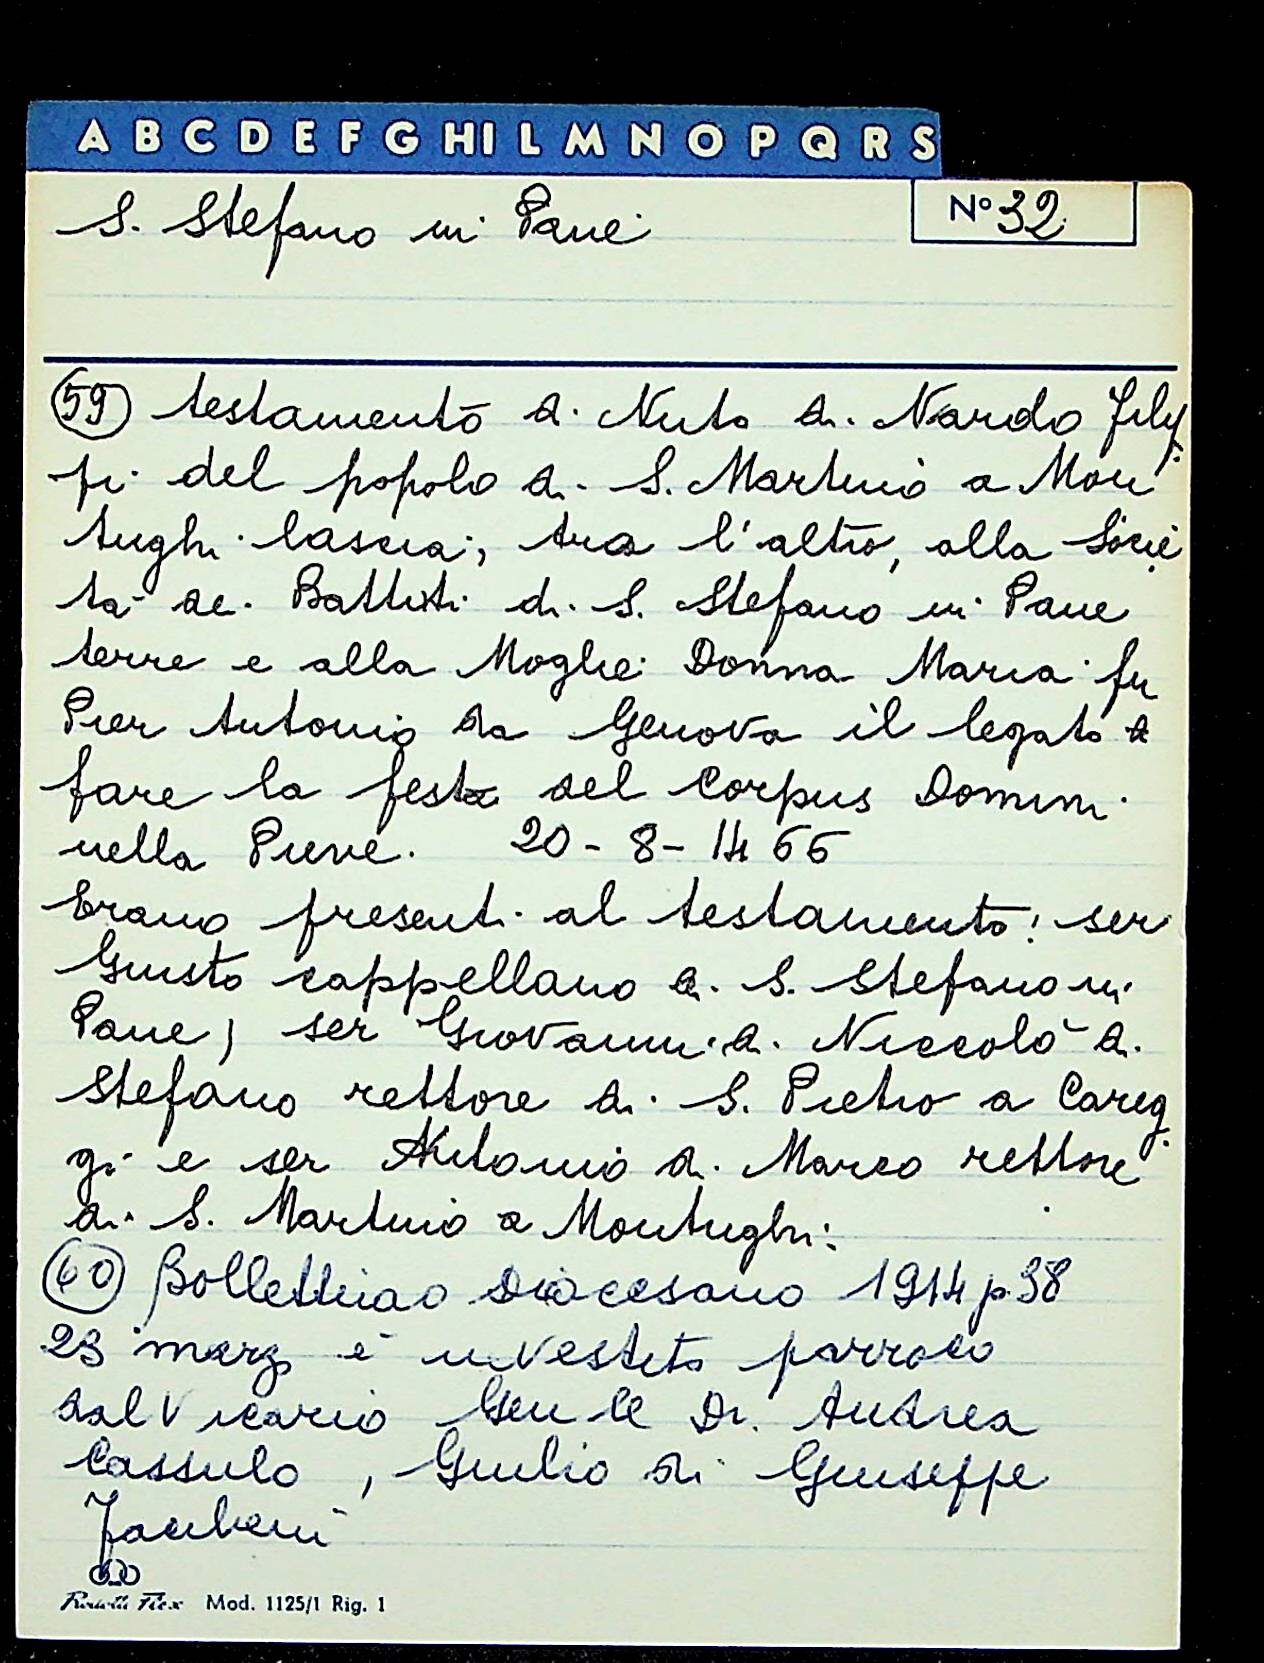 A B C D E F G HI L M N O P Q R S
S. Stefano in Pane
N° 32
59 testamento di Nuto di Nardo Filip
pi del popolo di S. Martino a Mon
tughi lascia, tra l'altro, alla Socie
tà dei Battuti di S. Stefano in Pane
terre e alla Moglie Donna Maria fu
Pier Antonio da Genova il legato di
fare la festa del Corpus Domini
nella Pieve. 20-8-1466
Erano presenti al testamento: ser
Giusto cappellano di S. Stefano in
Pane, ser Giovanni di Niccolò di
Stefano rettore di S. Pietro a Careg
gi e ser Antonio di Marco rettore
di S. Martino a Montughi.
60 Bollettino Diocesano 1914 p. 38
23 marzo è investito parroco
dal Vicario Gen le D. Andrea
Cassulo, Giulio di Giuseppe
Mod. 1125/1 Rig. 1